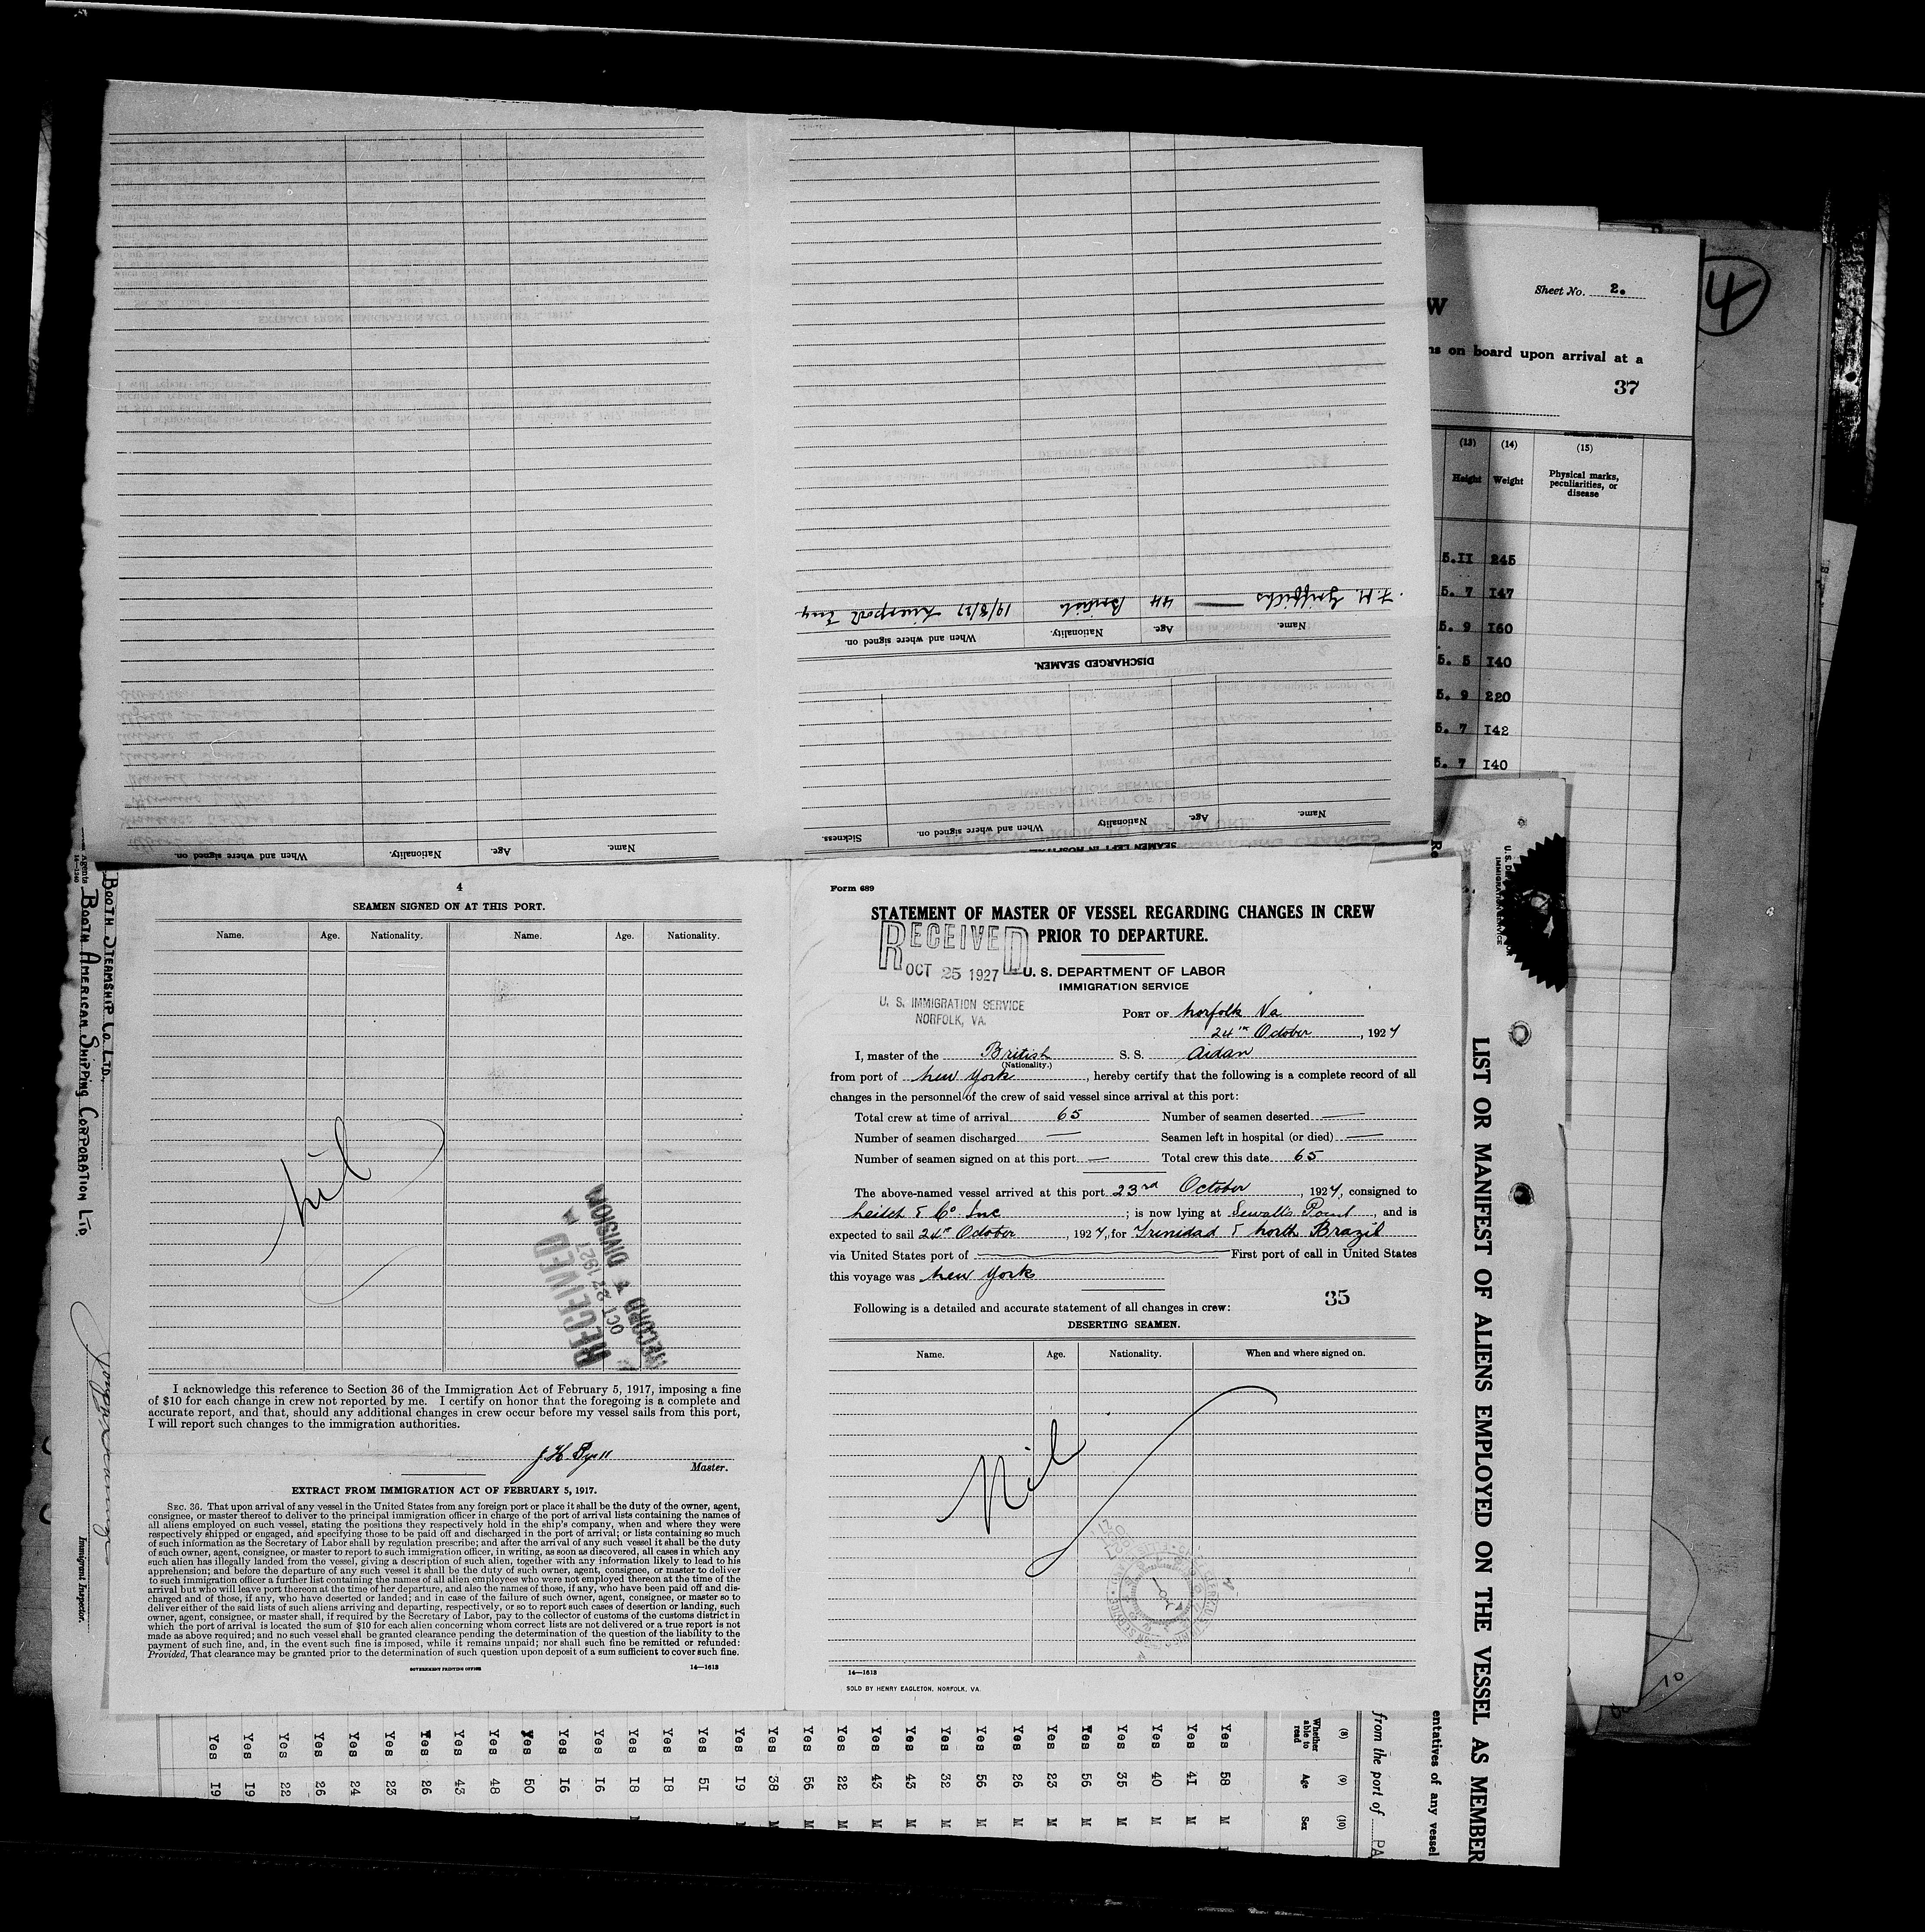 Sheet No. 2.
4
W
ns on board upon arrival at a
37
(13) (14) (15)
Height Weight Physical marks, peculiarities, or disease
5.II 245
5. 7 I47
5. 9 I60
5. 5 I40
5. 9 220
5. 7 I42
5. 7 I40
F. M. Griffiths — 44 British 19/8/27 Liverpool Eng
Name. Age. Nationality. When and where signed on.
DISCHARGED SEAMEN.
Name. Age. Nationality When and where signed on. Sickness.
SEAMEN LEFT IN HOSPITAL
Name. Age. Nationality. When and where signed on.
4
SEAMEN SIGNED ON AT THIS PORT.
Name. Age. Nationality. Name. Age. Nationality.
Nil
RECEIVED
OCT 27 1927
RECORD & DIVISION
I acknowledge this reference to Section 36 of the Immigration Act of February 5, 1917, imposing a fine
of $10 for each change in crew not reported by me. I certify on honor that the foregoing is a complete and
accurate report, and that, should any additional changes in crew occur before my vessel sails from this port,
I will report such changes to the immigration authorities.
Master.
EXTRACT FROM IMMIGRATION ACT OF FEBRUARY 5, 1917.
SEC. 36. That upon arrival of any vessel in the United States from any foreign port or place it shall be the duty of the owner, agent,
consignee, or master thereof to deliver to the principal immigration officer in charge of the port of arrival lists containing the names of
all aliens employed on such vessel, stating the positions they respectively hold in the ship's company, when and where they were
respectively shipped or engaged, and specifying those to be paid off and discharged in the port of arrival; or lists containing so much
of such information as the Secretary of Labor shall by regulation prescribe; and after the arrival of any such vessel it shall be the duty
of such owner, agent, consignee, or master to report to such immigration officer, in writing, as soon as discovered, all cases in which any
such alien has illegally landed from the vessel, giving a description of such alien, together with any information likely to lead to his
apprehension; and before the departure of any such vessel it shall be the duty of such owner, agent, consignee, or master to deliver
to such immigration officer a further list containing the names of all alien employees who were not employed thereon at the time of the
arrival but who will leave port thereon at the time of her departure, and also the names of those, if any, who have been paid off and dis-
charged and of those, if any, who have deserted or landed; and in case of the failure of such owner, agent, consignee, or master so to
deliver either of the said lists of such aliens arriving and departing, respectively, or so to report such cases of desertion or landing, such
owner, agent, consignee, or master shall, if required by the Secretary of Labor, pay to the collector of customs of the customs district in
which the port of arrival is located the sum of $10 for each alien concerning whom correct lists are not delivered or a true report is not
made as above required; and no such vessel shall be granted clearance pending the determination of the question of the liability to the
payment of such fine, and, in the event such fine is imposed, while it remains unpaid; nor shall such fine be remitted or refunded:
Provided, That clearance may be granted prior to the determination of such question upon deposit of a sum sufficient to cover such fine.
GOVERNMENT PRINTING OFFICE 14—1618
Form 689
STATEMENT OF MASTER OF VESSEL REGARDING CHANGES IN CREW
PRIOR TO DEPARTURE.
RECEIVED
OCT 25 1927
U. S. IMMIGRATION SERVICE
NORFOLK, VA.
U. S. DEPARTMENT OF LABOR
IMMIGRATION SERVICE
PORT OF Norfolk Va
24th October, 1927
I, master of the British S. S. Aidan
(Nationality.)
from port of New York, hereby certify that the following is a complete record of all
changes in the personnel of the crew of said vessel since arrival at this port:
Total crew at time of arrival 65 Number of seamen deserted —
Number of seamen discharged — Seamen left in hospital (or died) —
Number of seamen signed on at this port — Total crew this date 65
The above-named vessel arrived at this port 23rd October, 1927, consigned to
& Co Inc; is now lying at Sewalls Point, and is
expected to sail 24th October, 1927, for Trinidad & North Brazil
via United States port of First port of call in United States
this voyage was New York
35
Following is a detailed and accurate statement of all changes in crew:
DESERTING SEAMEN.
Name. Age. Nationality. When and where signed on.
Nil
14—1618
SOLD BY HENRY EAGLETON, NORFOLK, VA.
BOOTH STEAMSHIP CO. LTD.
BOOTH AMERICAN SHIPPING CORPORATION LTD.
Agents
14-1240
Immigrant Inspector.
LIST OR MANIFEST OF ALIENS EMPLOYED ON THE VESSEL AS MEMBER
entatives of any vessel
from the port of PA
(8) (9) (10)
Whether able to read Age Sex
Yes 58 M
Yes 4I M
Yes 40 M
Yes 35 M
Yes 56 M
Yes 23 M
Yes 26 M
Yes 56 M
Yes 32 M
Yes 43 M
Yes 43 M
Yes 22 M
Yes 56 M
Yes 38 M
Yes I9
Yes 5I
Yes I8
Yes I8
Yes I6
Yes I6
Yes 50
Yes 48
Yes 43
Yes 26
Yes 23
Yes 24
Yes 26
Yes 22
Yes I9
Yes I9